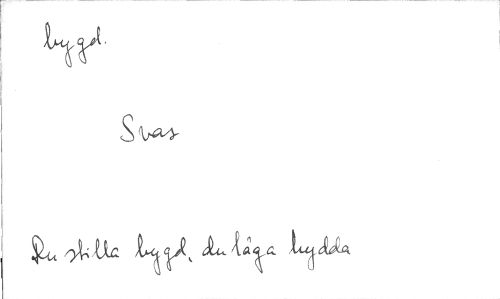 bygd.
Svas
Du stilla bygd, du låga hydda